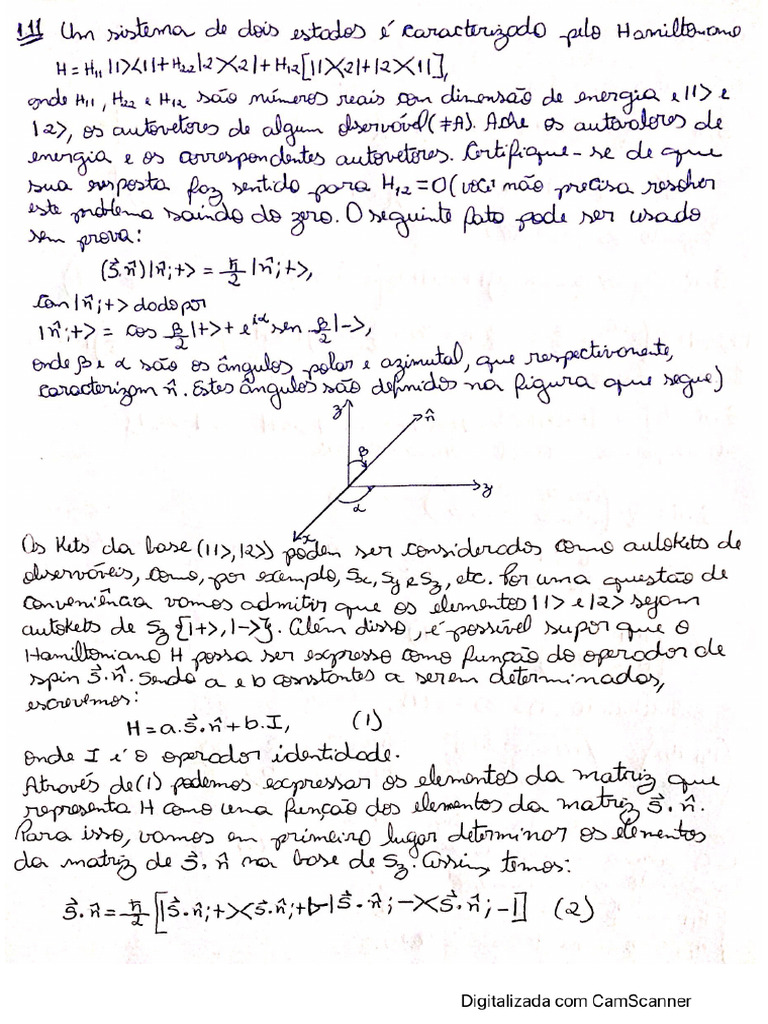 1.11 Um sistema de dois estados é caracterizado pelo Hamiltoniano
H = H₁₁|1><1| + H₂₂|2><2| + H₁₂[|1><2| + |2><1|],
onde H₁₁, H₂₂ e H₁₂ são números reais com dimensão de energia e |1> e
|2>, os autovetores de algum observável (≠A). Ache os autovalores de
energia e os correspondentes autovetores. Certifique-se de que
sua resposta faz sentido para H₁₂ = 0 (você não precisa resolver
este problema saindo do zero. O seguinte fato pode ser usado
sem prova:
(S⃗.n̂)|n̂;+> = ħ/2 |n̂;+>,
com |n̂;+> dado por
|n̂;+> = cos β/2 |+> + e^{iα} sen β/2 |->,
onde β e α são os ângulos polar e azimutal, que respectivamente,
caracterizam n̂. Estes ângulos são definidos na figura que segue)
z
n̂
β
y
α
x
Os Kets da base (|1>, |2>) podem ser considerados como autokets de
observáveis, como, por exemplo, Sx, Sy e Sz, etc. Por uma questão de
conveniência vamos admitir que os elementos |1> e |2> sejam
autokets de Sz {|+>, |->}. Além disso, é possível supor que o
Hamiltoniano H possa ser expresso como função do operador de
spin S⃗.n̂. Sendo a e b constantes a serem determinados,
escrevemos:
H = a.S⃗.n̂ + b.I, (1)
onde I é o operador identidade.
Através de (1) podemos expressar os elementos da matriz que
representa H como uma função dos elementos da matriz S⃗.n̂.
Para isso, vamos em primeiro lugar determinar os elementos
da matriz de S⃗.n̂ na base de Sz. Assim, temos:
S⃗.n̂ = ħ/2 [|S⃗.n̂;+><S⃗.n̂;+|-|S⃗.n̂;-><S⃗.n̂;-|] (2)
Digitalizada com CamScanner